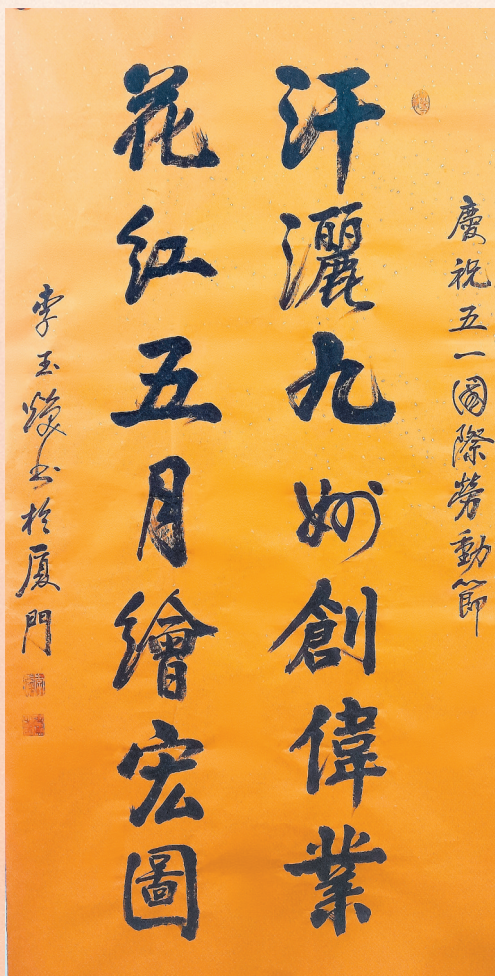 慶祝五一國際勞動節
汗灑九州創偉業
花红五月繪宏圖
李玉焕书於厦門